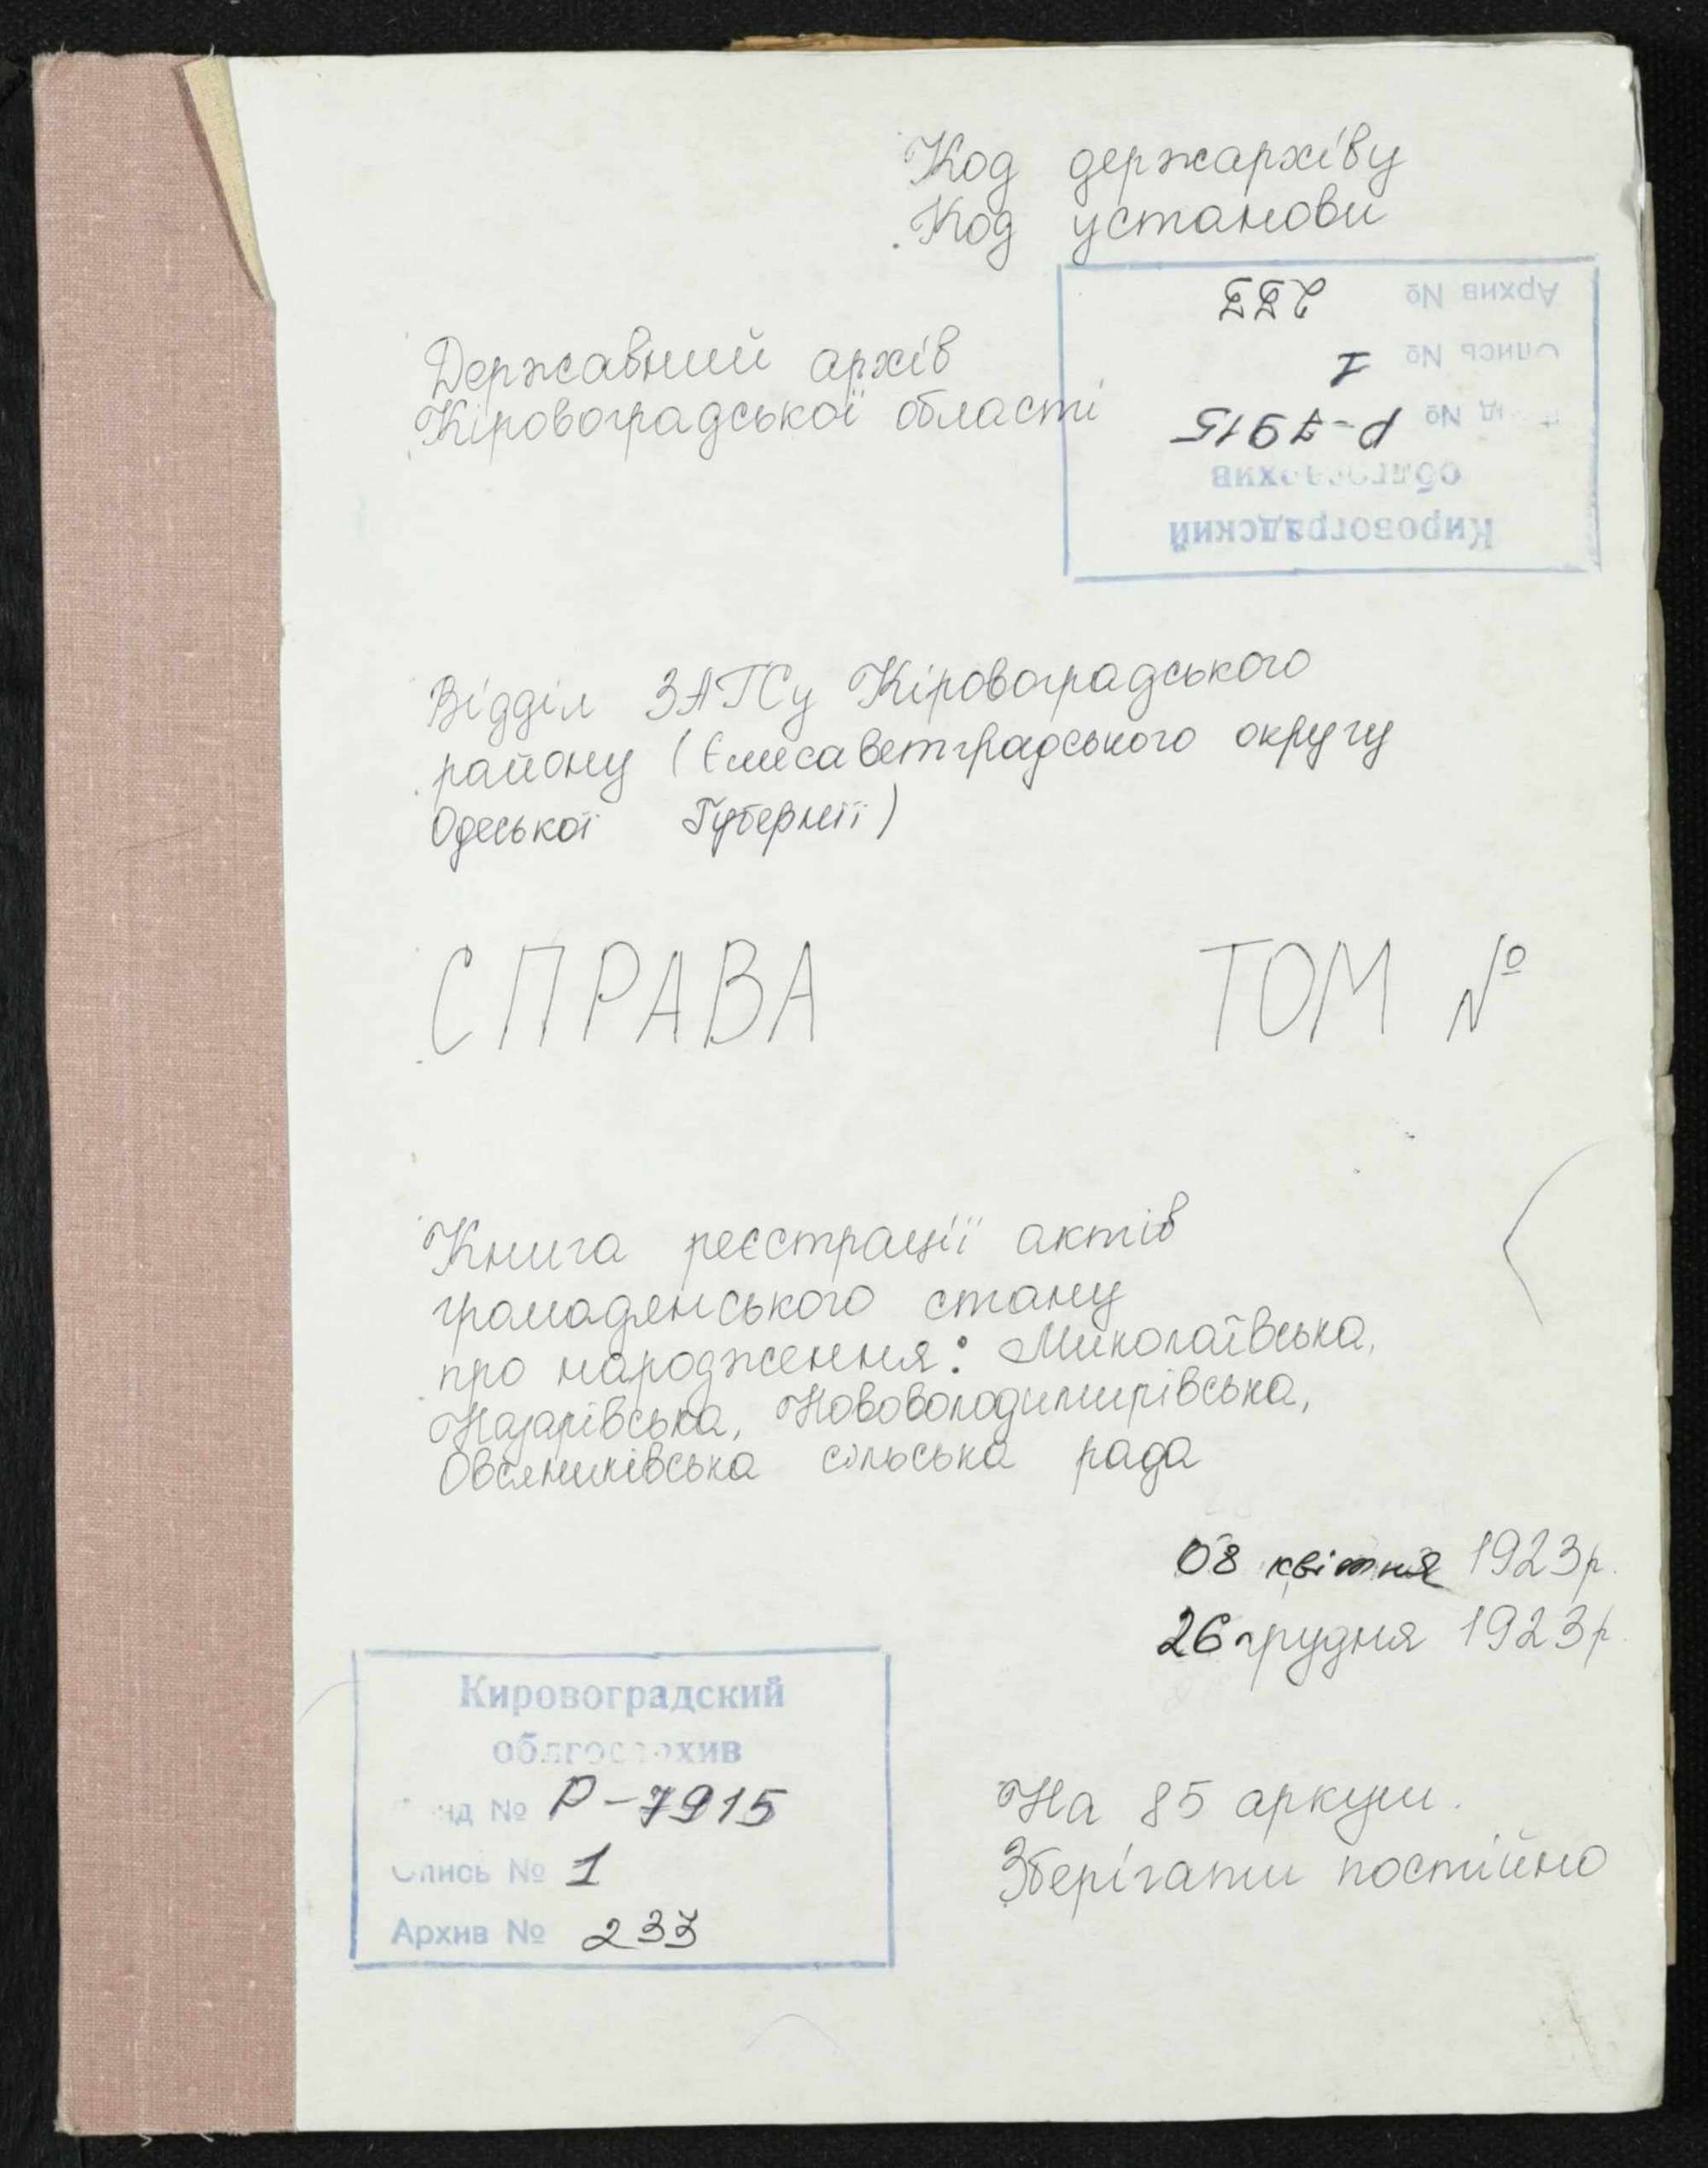 Код держархіву
Код установи
Архив № 233
Опись № 1
Фонд № Р-7915
облгосархив
Кировоградский
Державний архів
Кіровоградської області
Відділ ЗАГСу Кіровоградського
району (Єлисаветградського округу
Одеської Губернії)
СПРАВА ТОМ №
Книга реєстрації актів
громадянського стану
про народження: Миколаївська,
Назарівська, Нововолодимирівська,
Овсяниківська сільська рада
08 квітня 1923р.
26 грудня 1923р.
Кировоградский
облгосархив
Фонд № Р-7915
Опись № 1
Архив № 233
На 85 аркуш.
Зберігати постійно